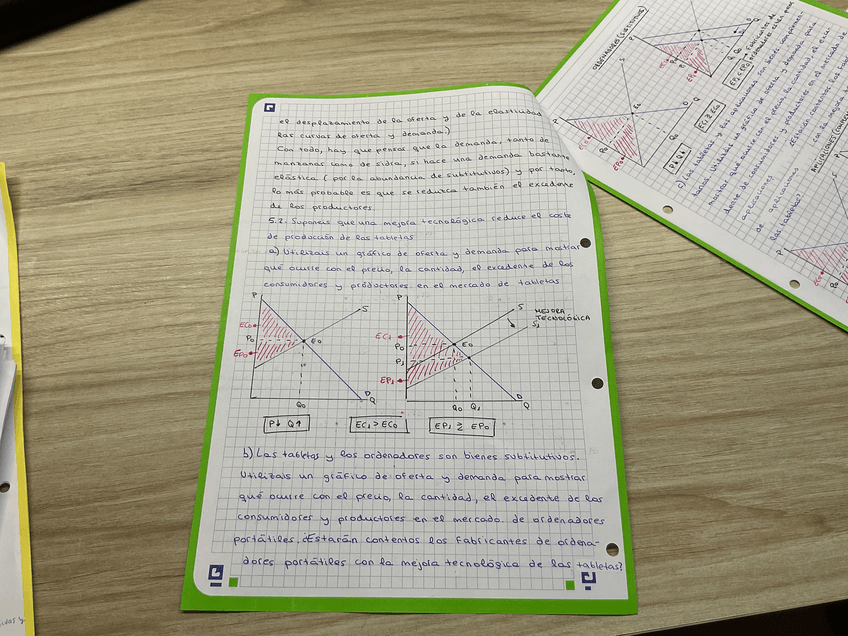 el desplazamiento de la oferta y de la elasticidad
las curvas de oferta y demanda.)
Con todo, hay que pensar que la demanda, tanto de
manzanas como de sidra, si hace una demanda bastante
elástica (por la abundancia de substitutivos) y por tanto,
lo más probable es que se reduzca también el excedente
de los productores
5.2. Suponeis que una mejora tecnológica reduce el coste
de producción de las tabletas
a) Utilizais un gráfico de oferta y demanda para mostrar
qué ocurre con el precio, la cantidad, el excedente de los
consumidores y productores en el mercado de tabletas
P
S
EC0
P0
E0
EP0
D
Q0
Q
P
S
MEJORA
TECNOLÓGICA
S1
EC1
P0
E0
P1
EP1
D
Q0
Q1
Q
P↓ Q↑
EC1 > EC0
EP1 ≷ EP0
b) Las tabletas y los ordenadores son bienes substitutivos.
Utilizais un gráfico de oferta y demanda para mostrar
qué ocurre con el precio, la cantidad, el excedente de los
consumidores y productores en el mercado de ordenadores
portátiles. ¿Estarán contentos los fabricantes de ordena-
dores portátiles con la mejora tecnológica de las tabletas?
ORDENADORES (SUSTITUTIVOS)
EP1 < EP0
Fabricantes de
P↓ Q↓
c) Las tabletas y las aplicaciones son bienes complemen-
tarios. Utilizais un gráfico de oferta y demanda para
mostrar qué ocurre con el precio, la cantidad, el exce-
dente de consumidores y productores en el mercado de
aplicaciones
de aplicaciones
las tabletas?